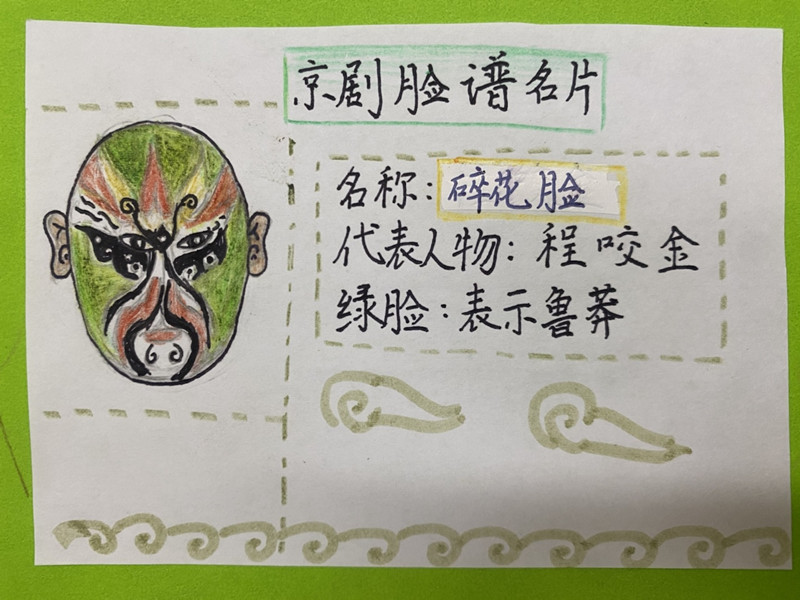 京剧脸谱名片
名称：碎花脸
代表人物：程咬金
绿脸：表示鲁莽